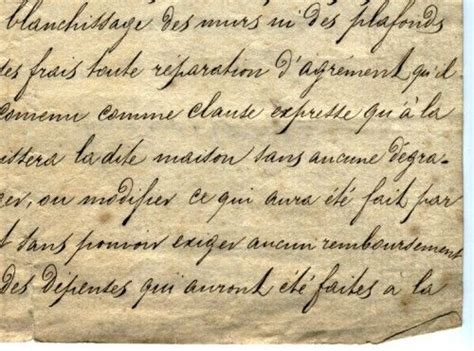 blanchissage des murs ni des plafonds
ses frais toute réparation d'agrément qu'il
convenu comme clause expresse qu'à la
issera la dite maison sans aucune dégra-
cer, ou modifier ce qui aura été fait par
t sans pouvoir exiger aucun remboursement
des dépenses qui auront été faites à la